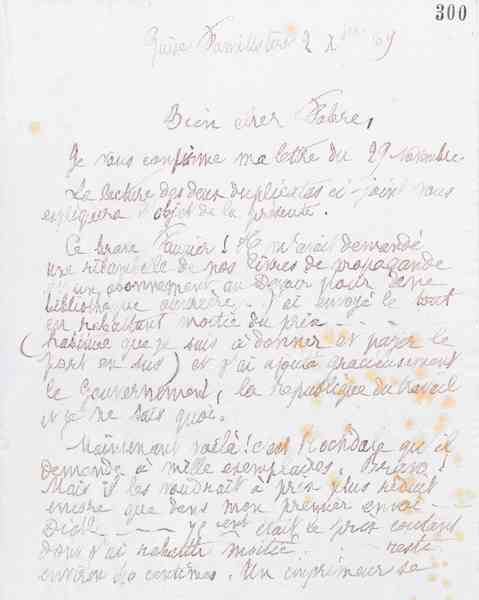 300
Guise Familistère 2 Xbre
Bien cher Fabre,
Je vous confirme ma lettre du 29 novembre.
La lecture des deux duplicatas ci-joint vous
expliquera l'objet de la présente.
Ce brave Fauvier ! Il m'avait demandé
une ribambelle de nos livres de propagande
et un abonnement au Devoir pour une
bibliothèque ouvrière. J'ai envoyé le tout
en rabattant moitié du prix
(habitué que je suis à donner et payer le
port en sus) et j'ai ajouté gracieusement
le Gouvernement, la république du travail
et je ne sais quoi.
Maintenant voilà ! c'est Rochdale qu'il
demande à mille exemplaires. Bravo !
Mais il les voudrait à prix plus réduit
encore que dans mon premier envoi
était le prix coûtant
dont j'ai rabattu moitié. reste
environ centimes. Un imprimeur se